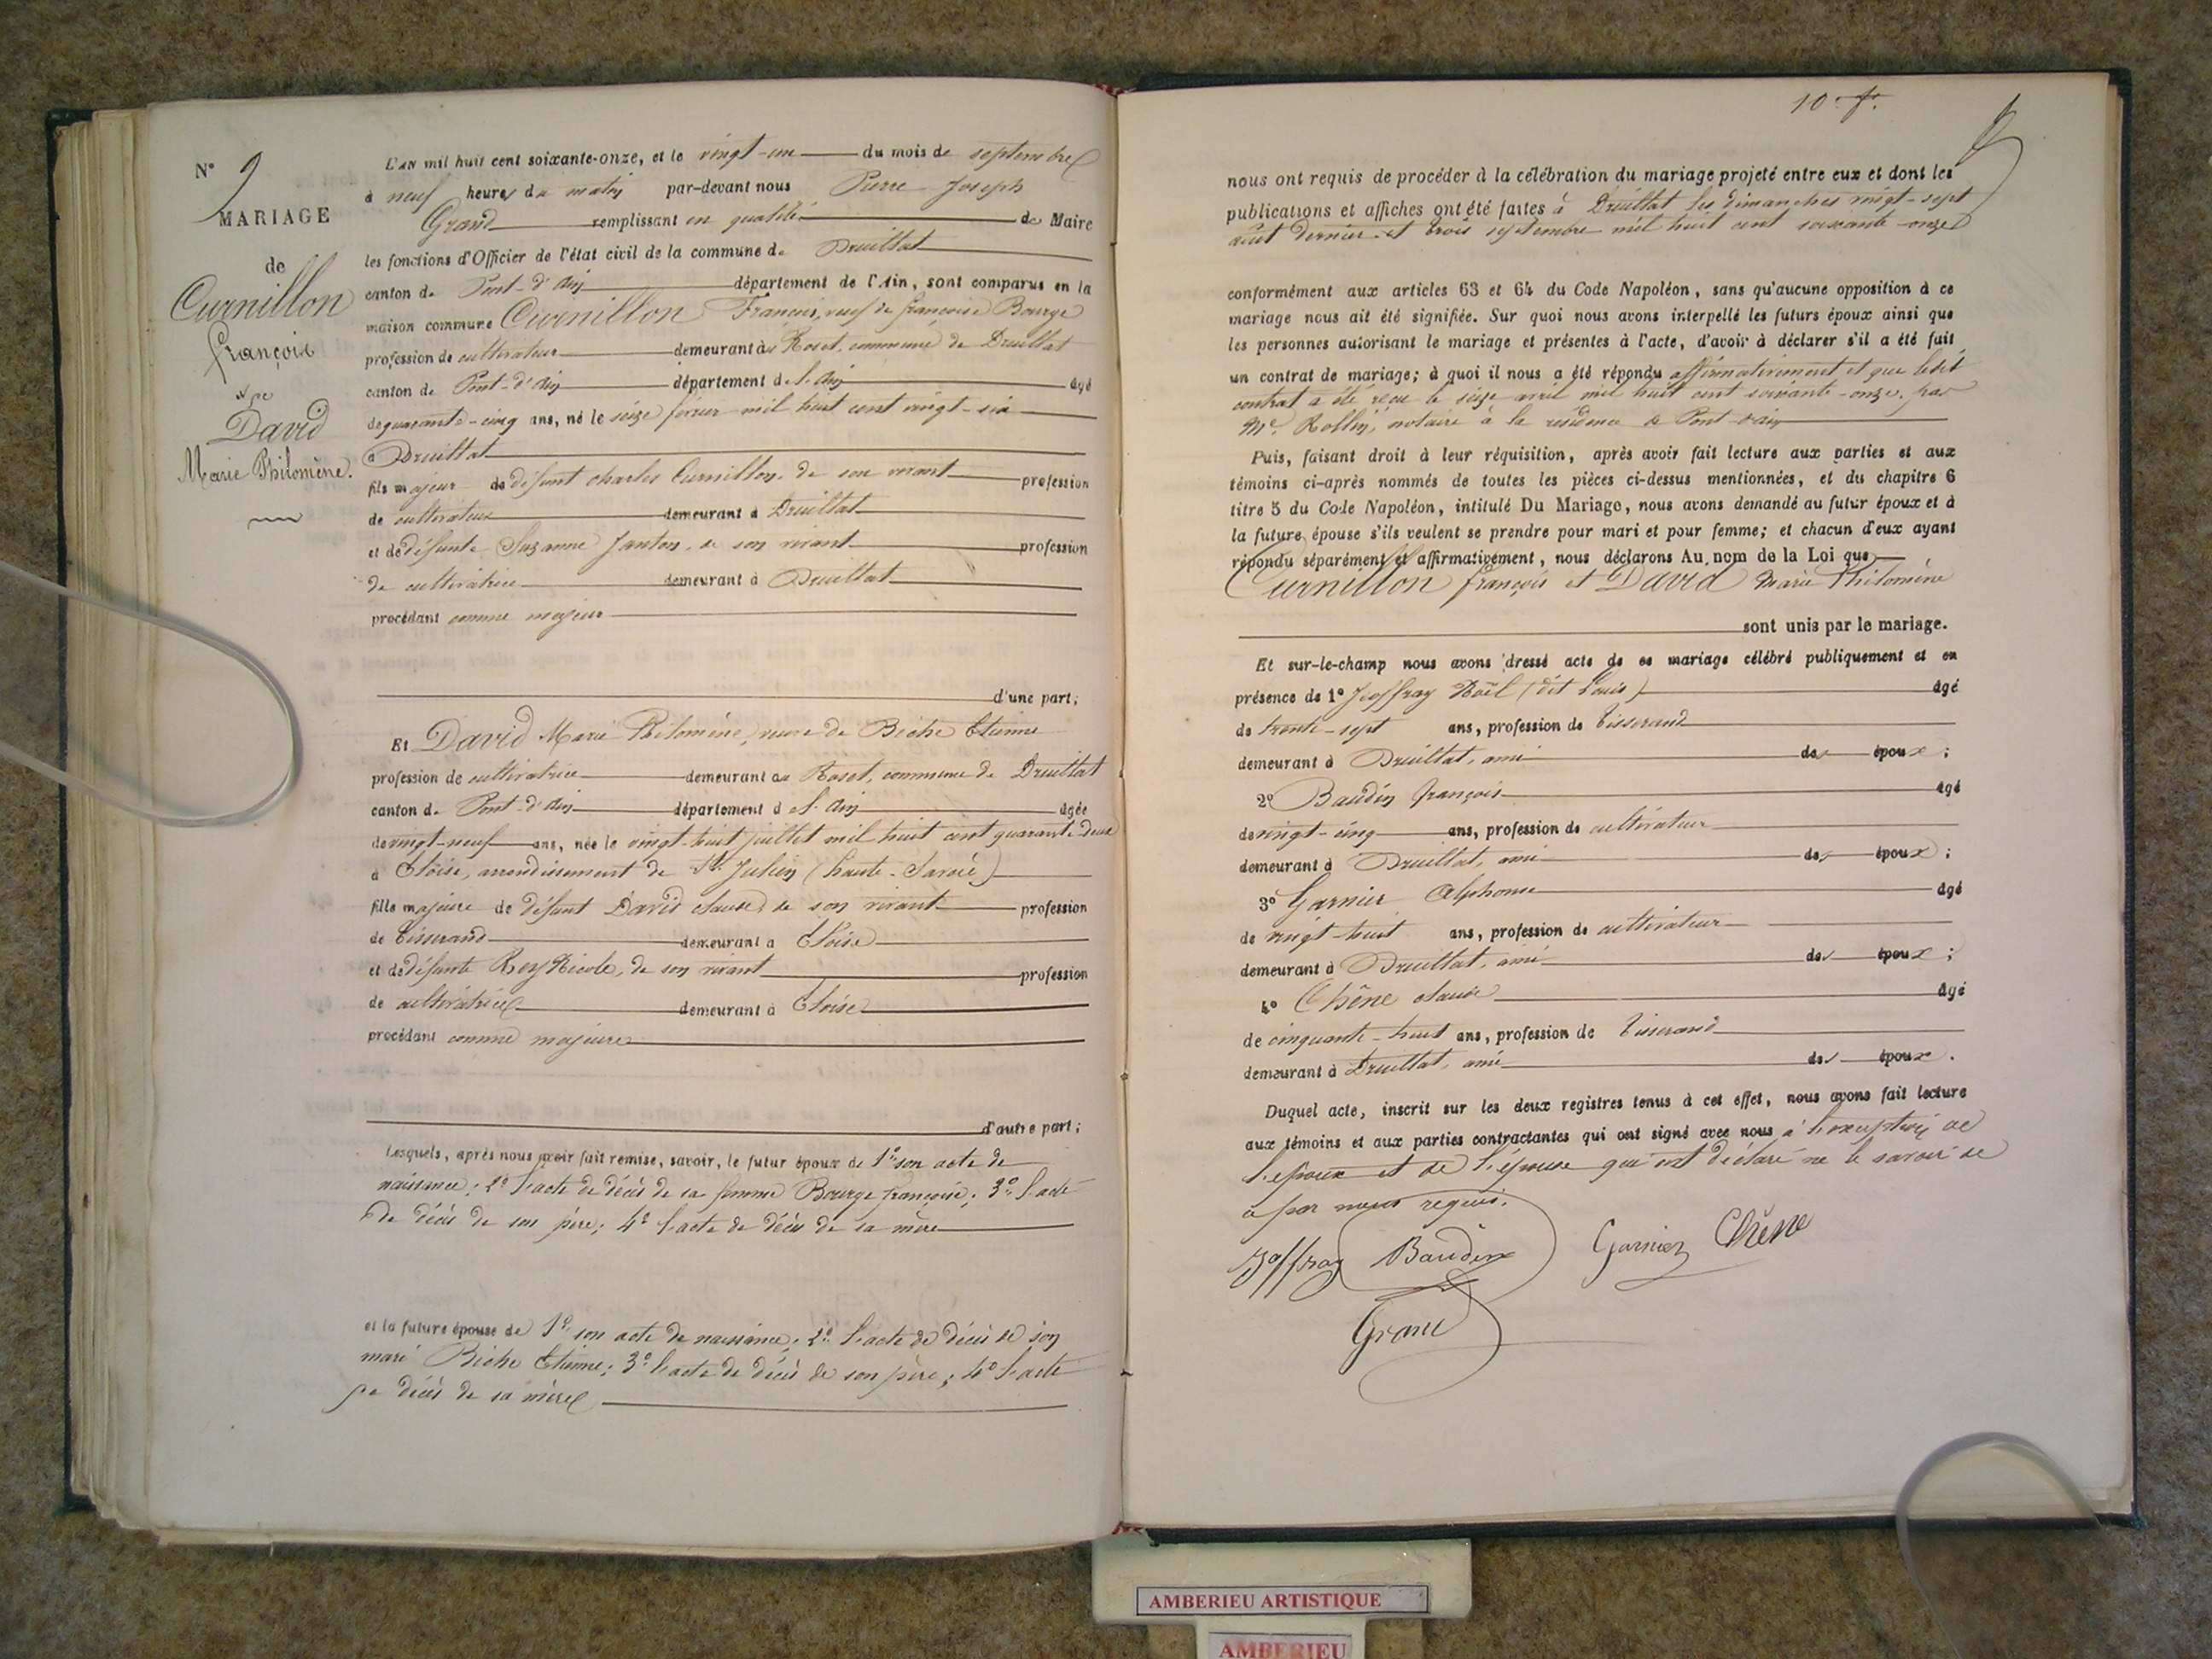 N° 9
MARIAGE
de
Curnillon
François
et de
David
Marie Philomène.
L'AN mil huit cent soixante-onze, et le vingt-un du mois de septembre
à neuf heures du matin par-devant nous Pierre Joseph
Grand remplissant en qualité de Maire
les fonctions d'Officier de l'état civil de la commune de Druillat
canton de Pont-d'Ain département de l'Ain, sont comparus en la
maison commune Curnillon François, veuf de Françoise Bourge
profession de cultivateur demeurant au Roset, commune de Druillat
canton de Pont-d'Ain département de l'Ain âgé
de quarante-cinq ans, né le seize février mil huit cent vingt-six
à Druillat
fils majeur de défunt Charles Curnillon, de son vivant profession
de cultivateur demeurant à Druillat
et de défunte Suzanne Janton, de son vivant profession
de cultivatrice demeurant à Druillat
procédant comme majeur
d'une part;
Et David Marie Philomène, veuve de Biche Etienne
profession de cultivatrice demeurant au Roset, commune de Druillat
canton de Pont-d'Ain département de l'Ain âgée
de vingt-neuf ans, née le vingt-huit juillet mil huit cent quarante-deux
à Eloise, arrondissement de St Julien (haute-Savoie)
fille majeure de défunt David Claude de son vivant profession
de tisserand demeurant à Eloise
et de défunte Rey Nicole, de son vivant profession
de cultivatrice demeurant à Eloise
procédant comme majeure
d'autre part;
Lesquels, après nous avoir fait remise, savoir, le futur époux de 1° son acte de
naissance; 2° l'acte de décès de sa femme Bourge Françoise; 3° l'acte
de décès de son père; 4° l'acte de décès de sa mère
et la future épouse de 1° son acte de naissance; 2° l'acte de décès de son
mari Biche Etienne; 3° l'acte de décès de son père; 4° l'acte
de décès de sa mère
10e f.
nous ont requis de procéder à la célébration du mariage projeté entre eux et dont les
publications et affiches ont été faites à Druillat les dimanches vingt-sept
août dernier et trois septembre mil huit cent soixante-onze
conformément aux articles 63 et 64 du Code Napoléon, sans qu'aucune opposition à ce
mariage nous ait été signifiée. Sur quoi nous avons interpellé les futurs époux ainsi que
les personnes autorisant le mariage et présentes à l'acte, d'avoir à déclarer s'il a été fait
un contrat de mariage; à quoi il nous a été répondu affirmativement et que ledit
contrat a été reçu le seize avril mil huit cent soixante-onze, par
Me Rollin, notaire à la résidence de Pont-d'ain
Puis, faisant droit à leur réquisition, après avoir fait lecture aux parties et aux
témoins ci-après nommés de toutes les pièces ci-dessus mentionnées, et du chapitre 6
titre 5 du Code Napoléon, intitulé Du Mariage, nous avons demandé au futur époux et à
la future épouse s'ils veulent se prendre pour mari et pour femme; et chacun d'eux ayant
répondu séparément et affirmativement, nous déclarons Au nom de la Loi que
Curnillon François et David Marie Philomène
sont unis par le mariage.
Et sur-le-champ nous avons dressé acte de ce mariage célébré publiquement et en
présence de 1° Joffray Noël (dit Louis) âgé
de trente-sept ans, profession de tisserand
demeurant à Druillat, ami des époux;
2° Baudin François âgé
de vingt-cinq ans, profession de cultivateur
demeurant à Druillat, ami des époux;
3° Garnier Alphonse âgé
de vingt-huit ans, profession de cultivateur
demeurant à Druillat, ami des époux;
4° Chêne Claude âgé
de cinquante-huit ans, profession de tisserand
demeurant à Druillat, ami des époux.
Duquel acte, inscrit sur les deux registres tenus à cet effet, nous avons fait lecture
aux témoins et aux parties contractantes qui ont signé avec nous à l'exception de
l'époux et de l'épouse qui ont déclaré ne le savoir de
ce par nous requis.
Joffray Baudin Garnier Chêne
Grand
AMBERIEU ARTISTIQUE
AMBERIEU